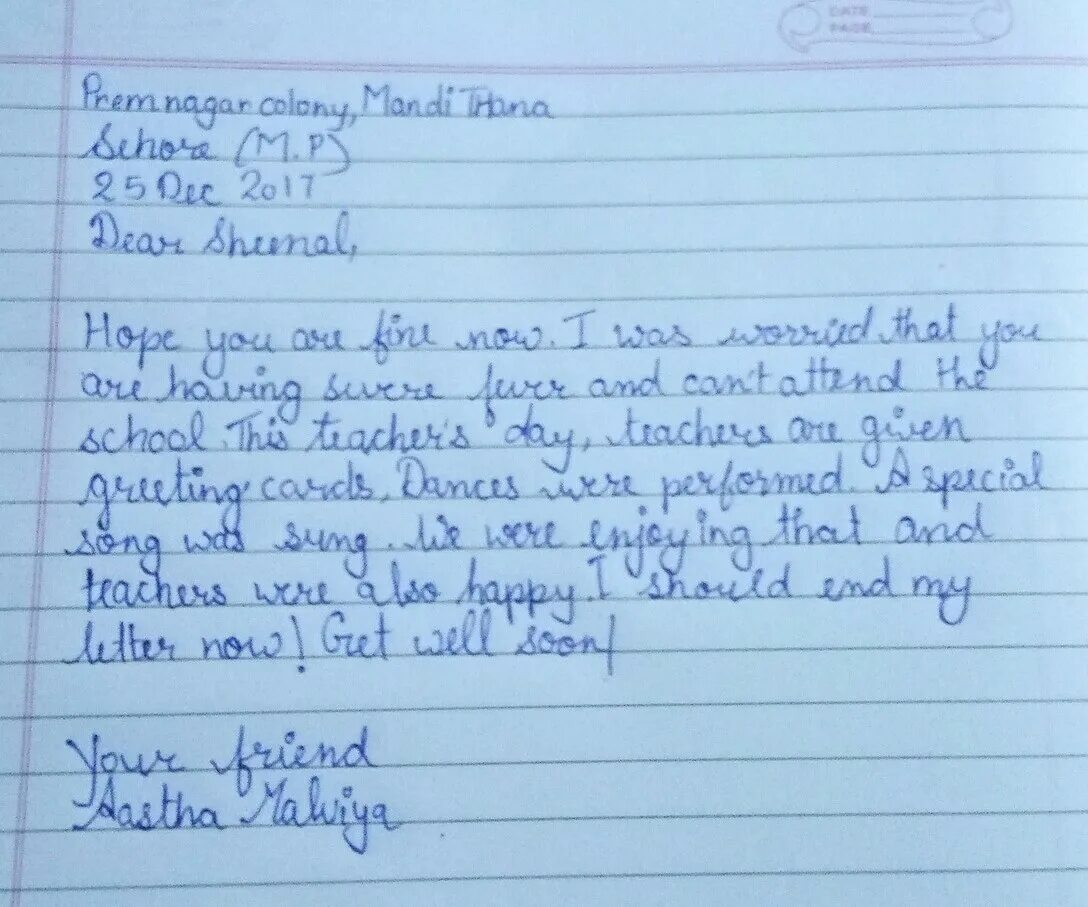 DATE
PAGE
Premnagar colony, Mandi Thana
Sehore (M.P)
25 Dec 2017
Dear Sheenal,
Hope you are fine now. I was worried that you
are having severe fever and can't attend the
school. This teacher's day, teachers are given
greeting cards. Dances were performed. A special
song was sung. We were enjoying that and
teachers were also happy. I should end my
letter now! Get well soon!
Your friend
Aastha Malviya